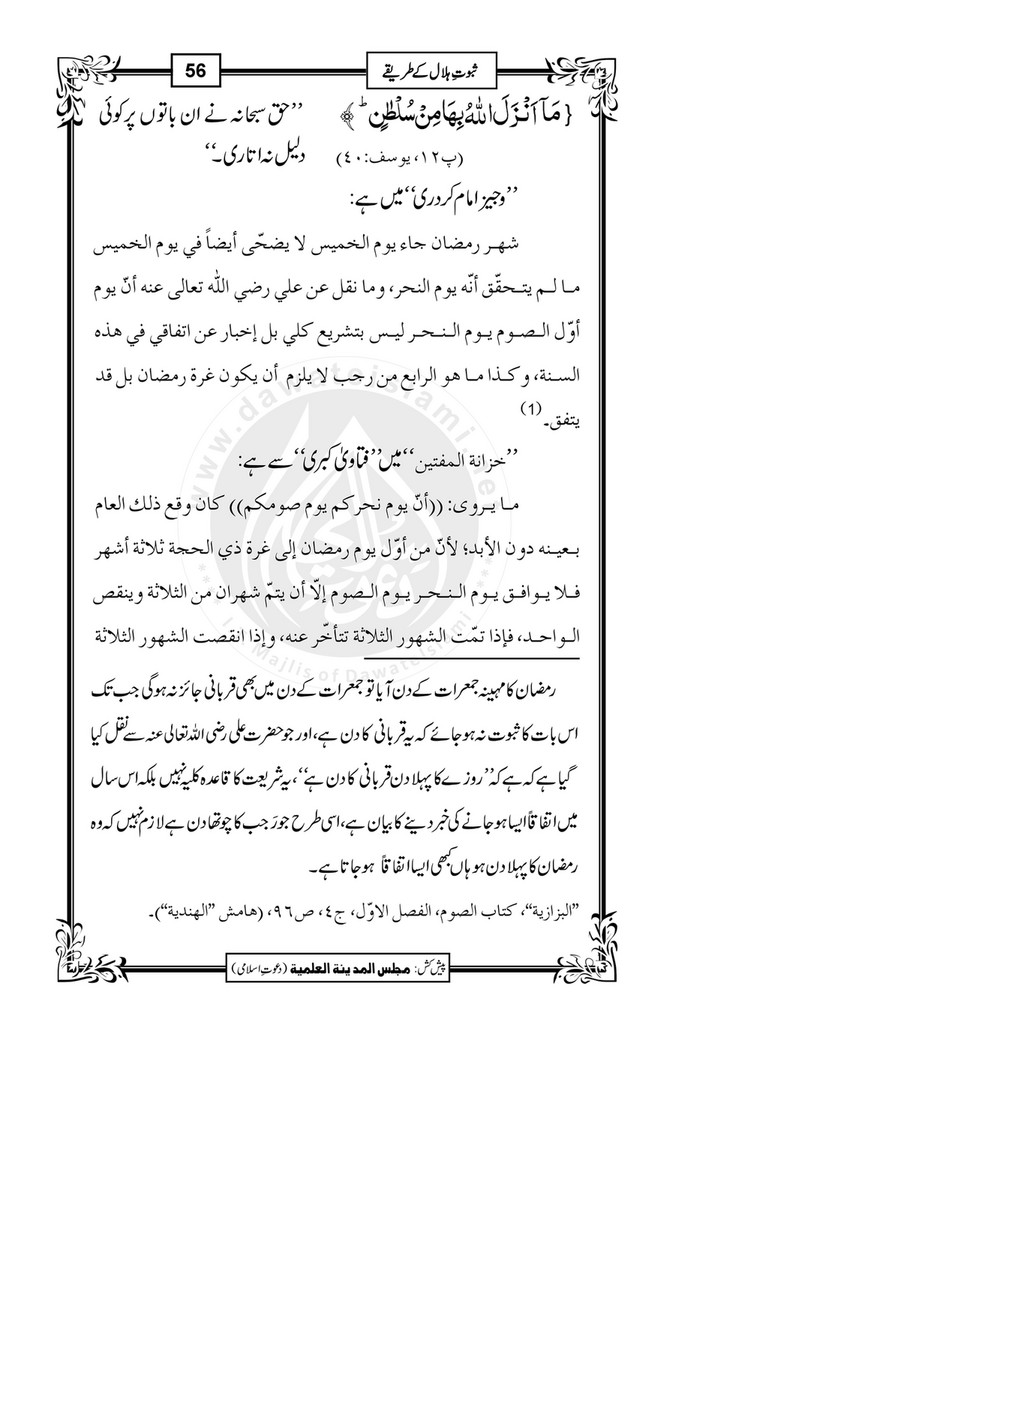 ثبوتِ ہلال کے طریقے
56
{مَاۤ اَنْزَلَ اللّٰهُ بِهَا مِنْ سُلْطٰنٍؕ} ’’حق سبحانہ نے ان باتوں پر کوئی
(پ١٢، یوسف:٤٠) دلیل نہ اتاری۔‘‘
’’وجیز امام کردری‘‘ میں ہے:
شهر رمضان جاء يوم الخميس لا يضحّى أيضاً في يوم الخميس
ما لم يتحقّق أنّه يوم النحر، وما نقل عن علي رضي الله تعالى عنه أنّ يوم
أوّل الصوم يوم النحر ليس بتشريع كلي بل إخبار عن اتفاقي في هذه
السنة، وكذا ما هو الرابع من رجب لا يلزم أن يكون غرة رمضان بل قد
يتفق۔(1)
’’خزانة المفتين‘‘ میں ’’فتاویٰ کبری‘‘ سے ہے:
ما يروى: ((أنّ يوم نحركم يوم صومكم)) كان وقع ذلك العام
بعينه دون الأبد؛ لأنّ من أوّل يوم رمضان إلى غرة ذي الحجة ثلاثة أشهر
فلا يوافق يوم النحر يوم الصوم إلاّ أن يتمّ شهران من الثلاثة وينقص
الواحد، فإذا تمّت الشهور الثلاثة تتأخّر عنه، وإذا انقصت الشهور الثلاثة
رمضان کا مہینہ جمعرات کے دن آیا تو جمعرات کے دن میں بھی قربانی جائز نہ ہوگی جب تک
اس بات کا ثبوت نہ ہو جائے کہ یہ قربانی کا دن ہے، اور جو حضرت علی رضی اللہ تعالی عنہ سے نقل کیا
گیا ہے کہ ہے کہ’’روزے کا پہلا دن قربانی کا دن ہے‘‘، یہ شریعت کا قاعدہ کلیہ نہیں بلکہ اس سال
میں اتفاقاً ایسا ہو جانے کی خبر دینے کا بیان ہے، اسی طرح جو رَجب کا چوتھا دن ہے لازم نہیں کہ وہ
رمضان کا پہلا دن ہو ہاں کبھی ایسا اتفاقاً ہو جاتا ہے۔
”البزازية“، كتاب الصوم، الفصل الاوّل، ج٤، ص٩٦، (هامش ”الهندية“)۔
پیش کش: مجلس المدينة العلمية (دعوتِ اسلامی)
www.dawateislami.ne
I.T Majlis of DawateIslami